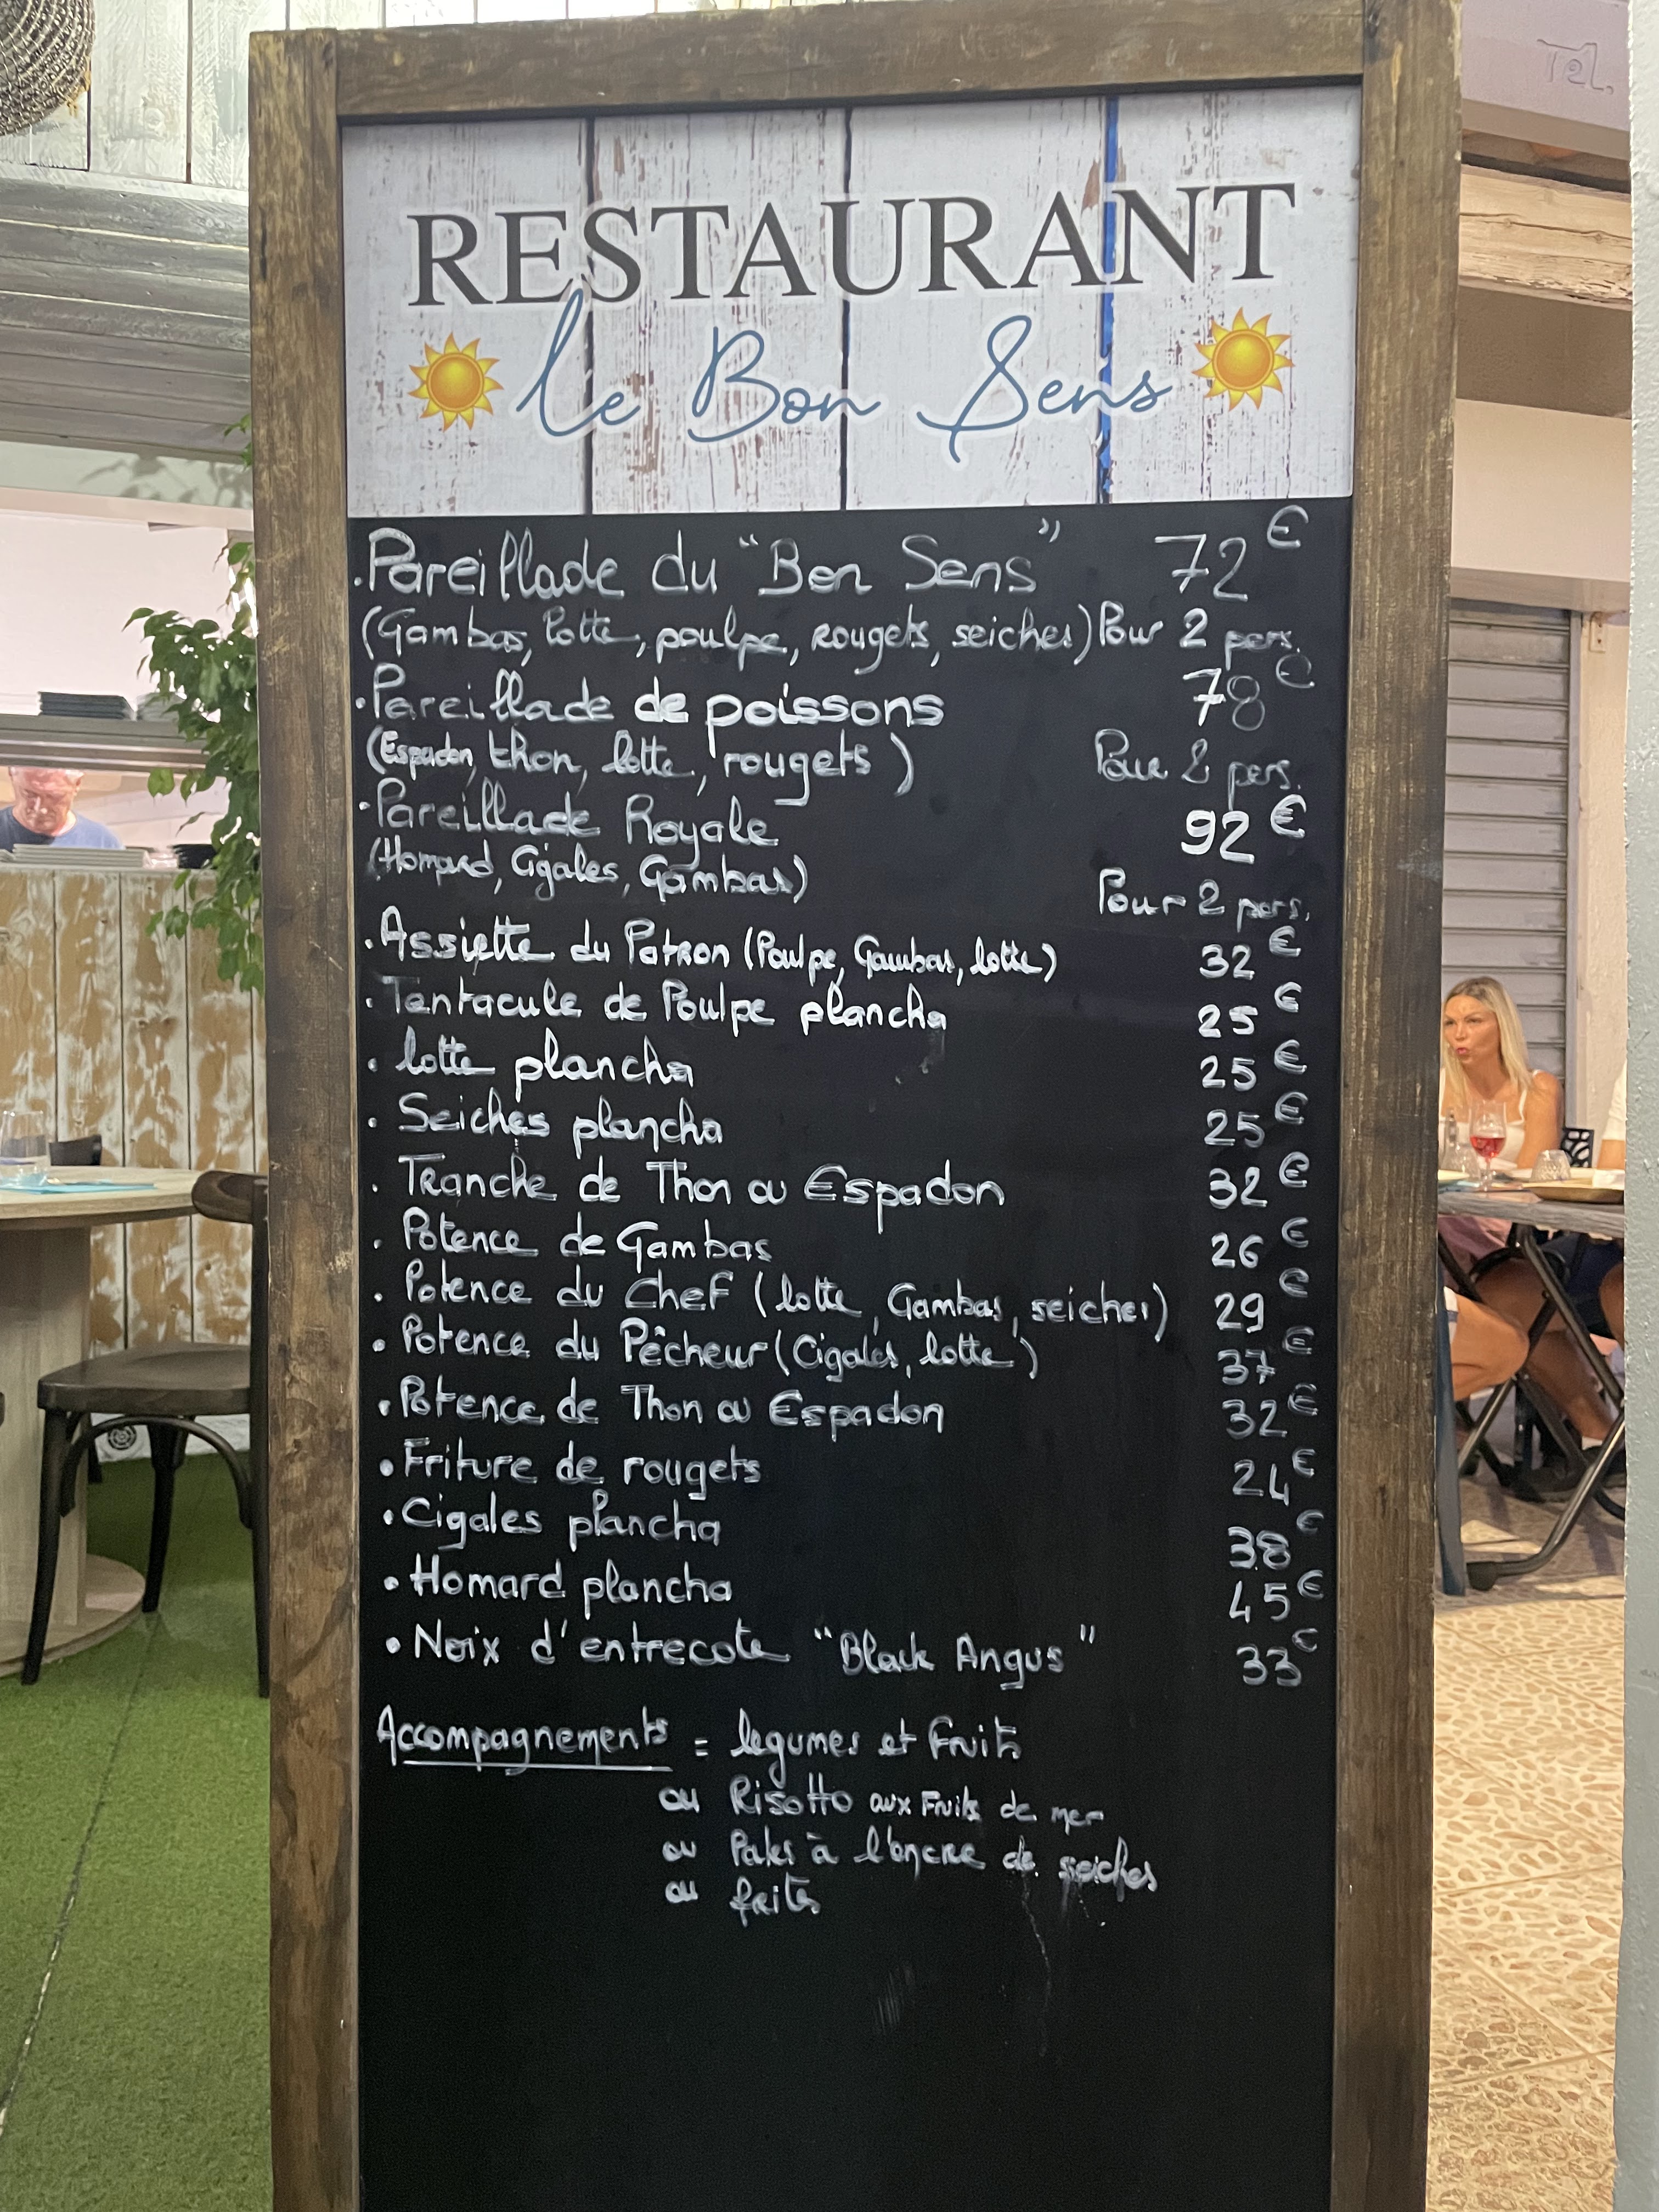 Tel.
RESTAURANT
le Bon Sens
. Pareillade du "Bon Sens" 72€
(Gambas, lotte, poulpe, rougets, seiches) Pour 2 pers.
. Pareillade de poissons 78€
(Espadon, thon, lotte, rougets) Pour 2 pers.
. Pareillade Royale 92€
(Homard, Cigales, Gambas) Pour 2 pers.
. Assiette du Patron (Poulpe, Gambas, lotte) 32€
. Tentacule de Poulpe plancha 25€
. lotte plancha 25€
. Seiches plancha 25€
. Tranche de Thon ou Espadon 32€
. Potence de Gambas 26€
. Potence du Chef (lotte, Gambas, seiches) 29€
. Potence du Pêcheur (Cigales, lotte) 37€
. Potence de Thon ou Espadon 32€
. Friture de rougets 24€
. Cigales plancha 38€
. Homard plancha 45€
. Noix d'entrecote "Black Angus" 33€
Accompagnements = legumes et Fruits
ou Risotto aux Fruits de mer
ou Pates à l'encre de seiches
ou frites